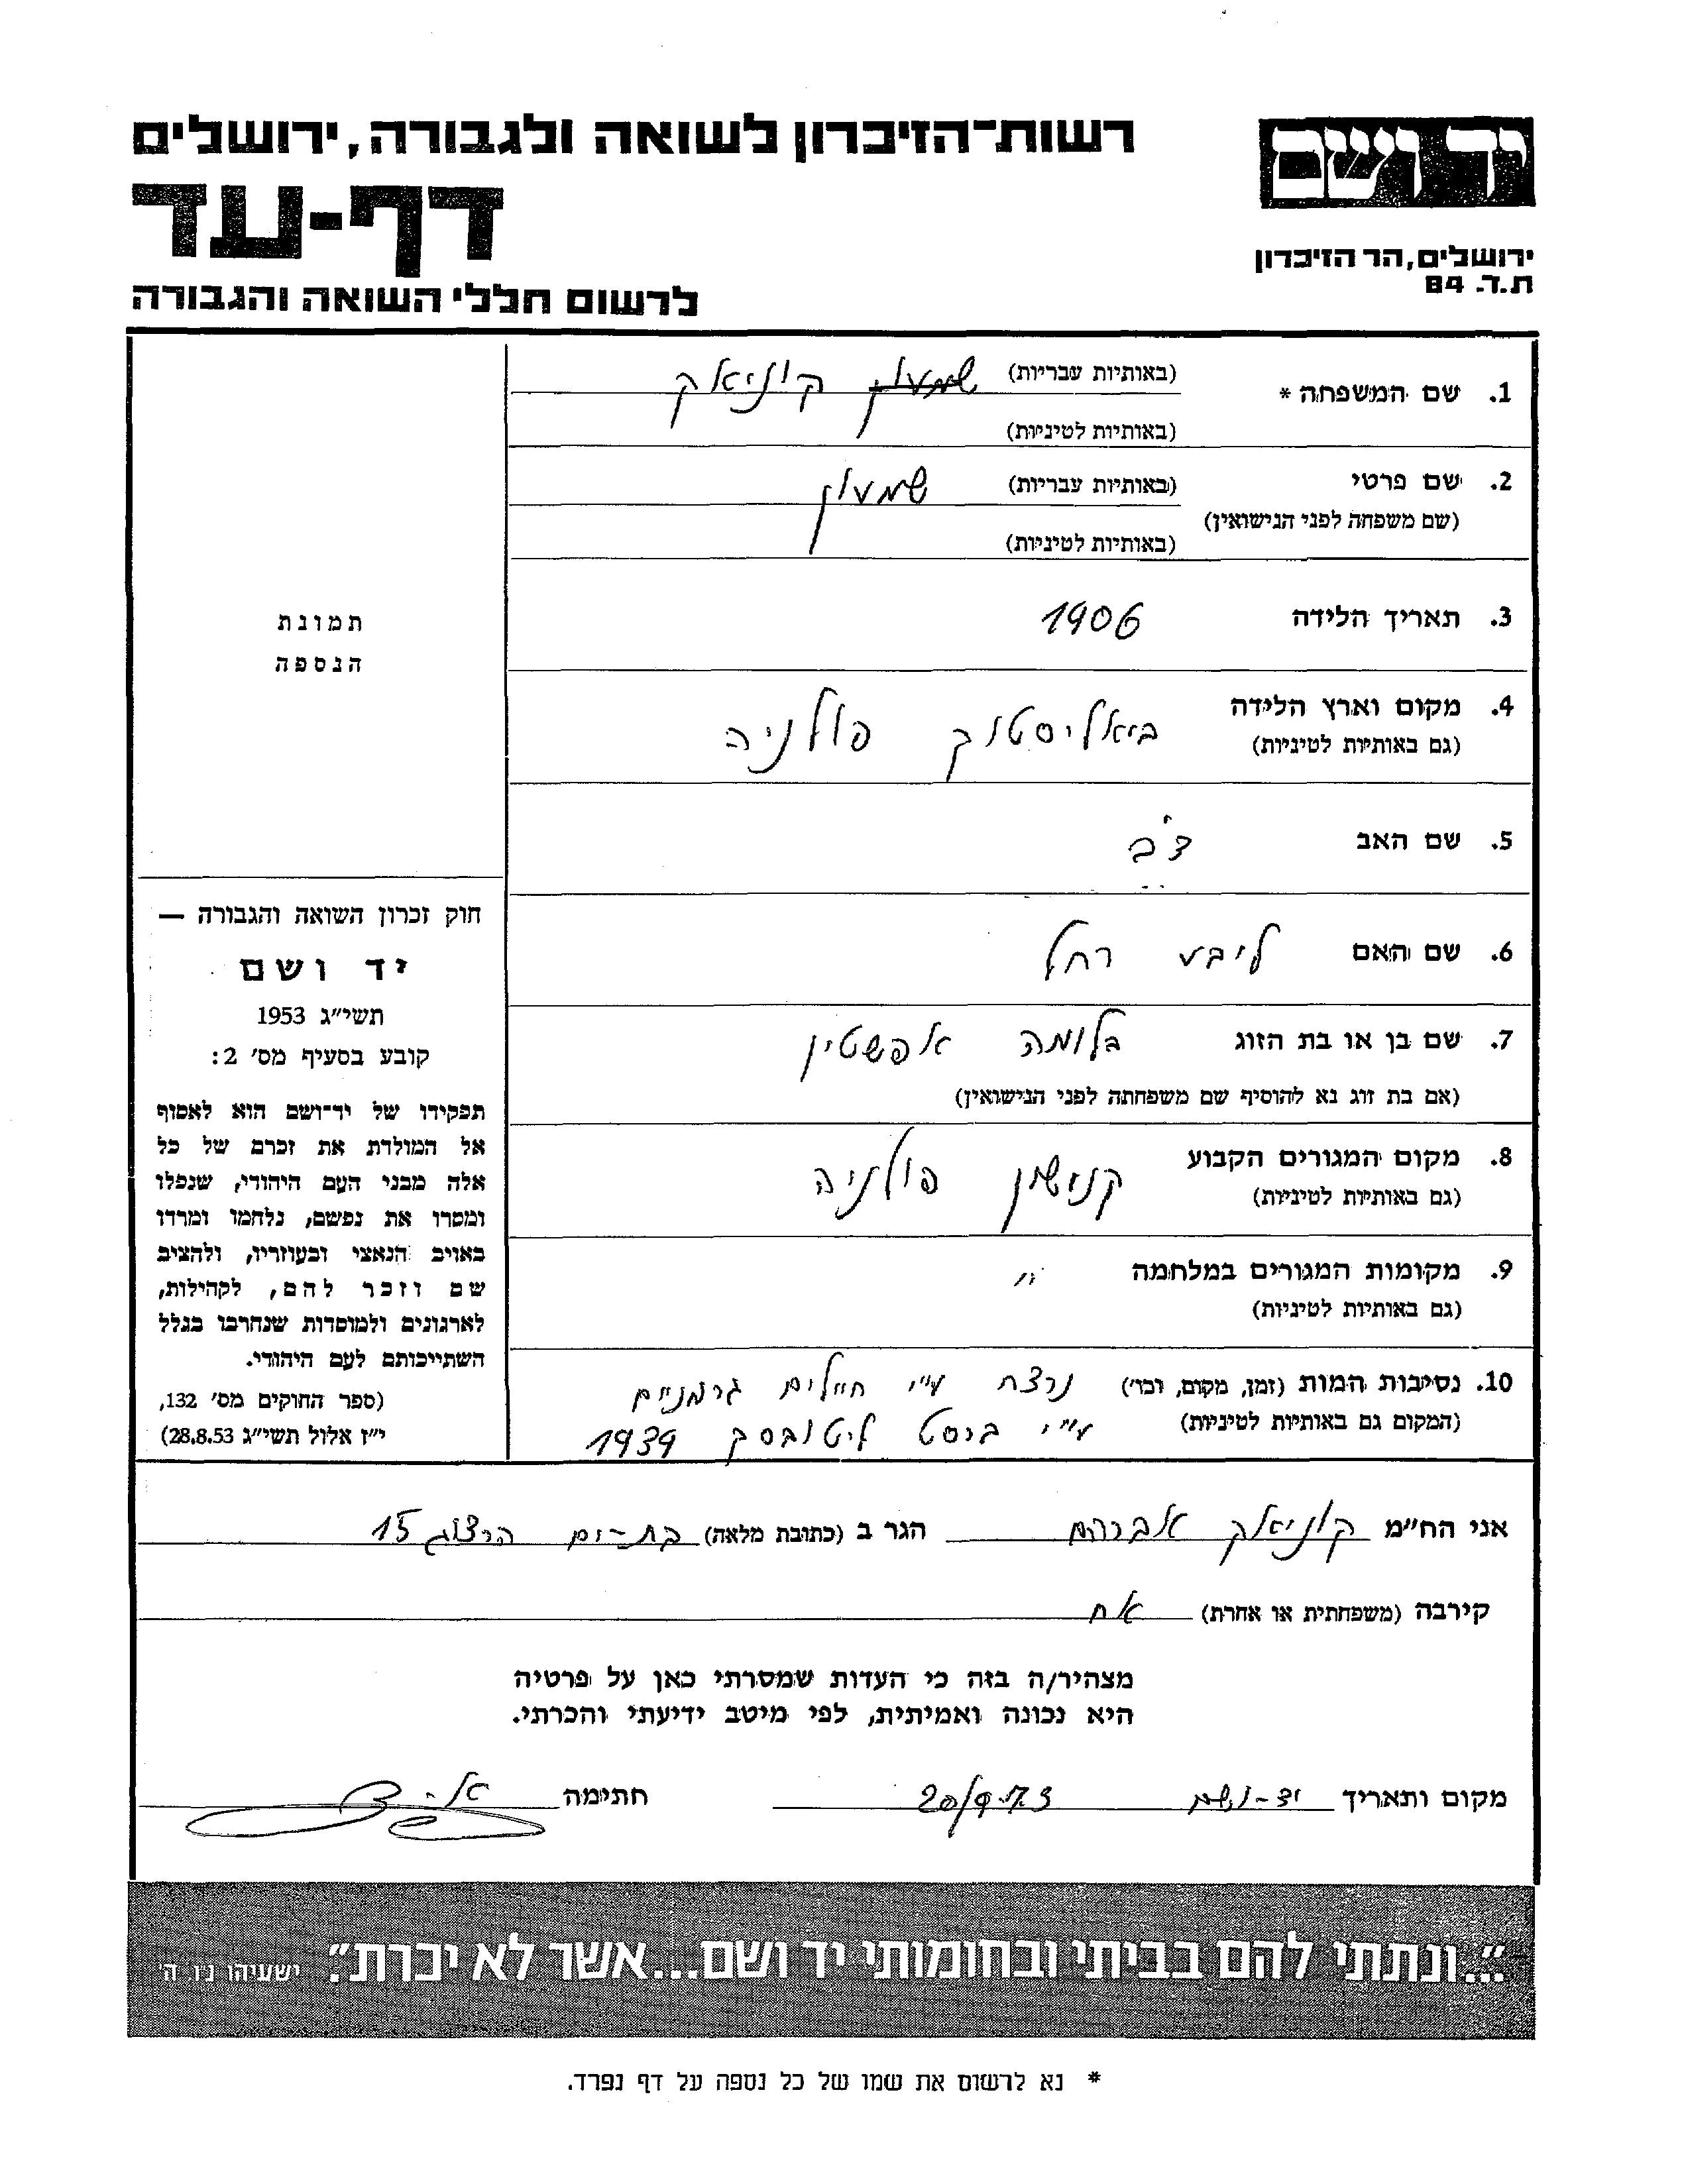 רשות־הזיכרון לשואה ולגבורה, ירושלים
יד ושם
דף-עד
ירושלים, הר הזיכרון
ת.ד. 84
לרשום חללי השואה והגבורה
1. שם המשפחה * (באותיות עבריות) שמעון קוניאק
(באותיות לטיניות)
2. שם פרטי (באותיות עבריות) שמעון
(שם משפחה לפני הנישואין)
(באותיות לטיניות)
3. תאריך הלידה 1906
4. מקום וארץ הלידה ביאליסטוק פולניה
(גם באותיות לטיניות)
5. שם האב צבי
6. שם האם ליבע רחל
7. שם בן או בת הזוג בלומה אפשטין
(אם בת זוג נא להוסיף שם משפחתה לפני הנישואין)
8. מקום המגורים הקבוע קנישין פולניה
(גם באותיות לטיניות)
9. מקומות המגורים במלחמה "
(גם באותיות לטיניות)
10. נסיבות המות (זמן, מקום, וכו') נרצח ע"י חיילים גרמניים
(המקום גם באותיות לטיניות) ע"י בריסט ליטובסק 1939
תמונת
הנספה
חוק זכרון השואה והגבורה —
יד ושם
תשי"ג 1953
קובע בסעיף מס' 2:
תפקידו של יד־ושם הוא לאסוף
אל המולדת את זכרם של כל
אלה מבני העם היהודי, שנפלו
ומסרו את נפשם, נלחמו ומרדו
באויב הנאצי ובעוזריו, ולהציב
שם וזכר להם, לקהילות,
לארגונים ולמוסדות שנחרבו בגלל
השתייכותם לעם היהודי.
(ספר החוקים מס' 132,
י"ז אלול תשי"ג 28.8.53)
אני הח"מ קוניאק אברהם הגר ב (כתובת מלאה) בת-ים הרצוג 15
קירבה (משפחתית או אחרת) אח
מצהיר/ה בזה כי העדות שמסרתי כאן על פרטיה
היא נכונה ואמיתית, לפי מיטב ידיעתי והכרתי.
מקום ותאריך יד-ושם 20/9.73 חתימה
"...ונתתי להם בביתי ובחומותי יד ושם...אשר לא יכרת". ישעיהו נו ה'
* נא לרשום את שמו של כל נספה על דף נפרד.